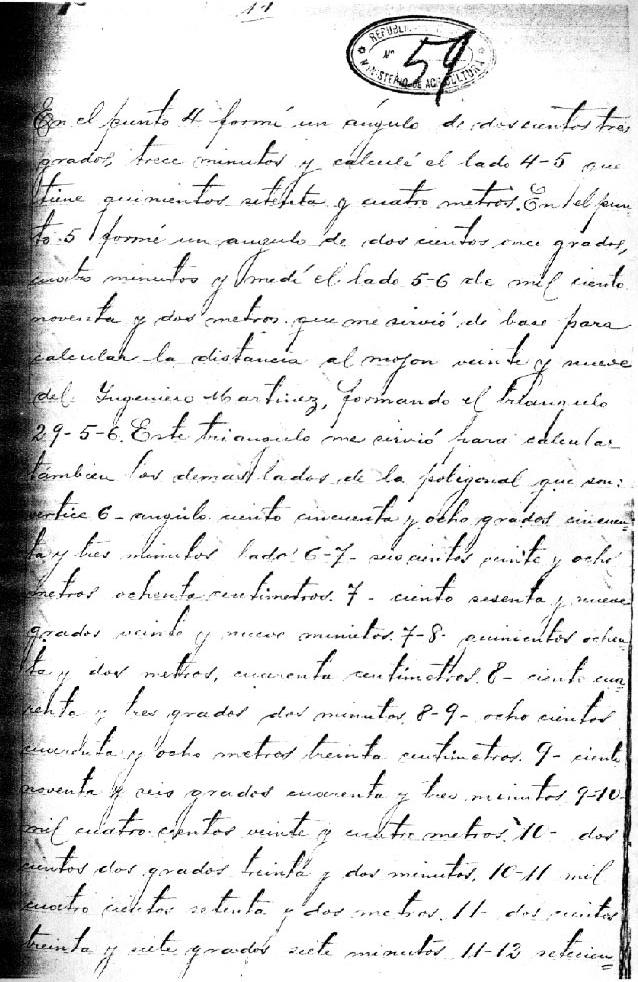 11
REPUBLI
Nº 59
MINISTERIO DE AGRICULTURA
En el punto 4 formé un ángulo de doscientos tres
grados, trece minutos y calculé el lado 4-5 que
tiene quinientos setenta y cuatro metros. En el pun-
to 5 formé un angulo de dos cientos once grados,
cuatro minutos y medí el lado 5-6 de mil ciento
noventa y dos metros que me sirvió de base para
calcular la distancia al mojon veinte y nueve
del Ingeniero Martinez, formando el triangulo
29-5-6. Este triangulo me sirvió para calcular
tambien los demas lados de la poligonal que son:
vertice 6 - angulo ciento cincuenta y ocho grados cincuen=
ta y tres minutos lado 6-7 - seiscientos veinte y ocho
metros ochenta centimetros. 7 - ciento sesenta y nueve
grados veinte y nueve minutos. 7-8 - quinientos ochen=
ta y dos metros, cuarenta centimetros. 8 - ciento cua=
renta y tres grados dos minutos. 8-9 - ocho cientos
cuarenta y ocho metros treinta centimetros. 9 - ciento
noventa y seis grados cuarenta y tres minutos 9-10
mil cuatro cientos veinte y cuatro metros. 10 - dos
cientos dos grados treinta y dos minutos. 10-11 mil
cuatro cientos setenta y dos metros. 11 - dos cientos
treinta y siete grados siete minutos 11-12 setecien=